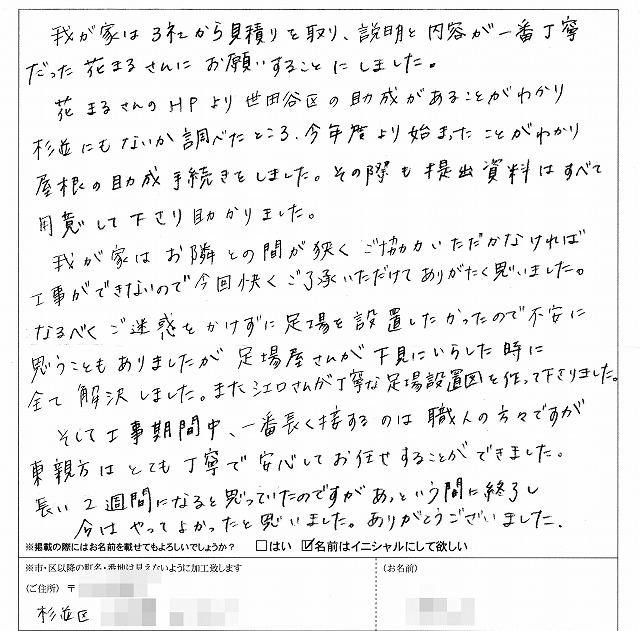 我が家は3社から見積りを取り、説明と内容が一番丁寧
だった花まるさんにお願いすることにしました。
花まるさんのHPより世田谷区の助成があることがわかり
杉並にもないか調べたところ、今年度より始まったことがわかり
屋根の助成手続きをしました。その際も提出資料はすべて
用意して下さり助かりました。
我が家はお隣との間が狭くご協力いただかなければ
工事ができないので今回快くご了承いただけてありがたく思いました。
なるべくご迷惑をかけずに足場を設置したかったので不安に
思うこともありましたが足場屋さんが下見にいらした時に
全て解決しました。またシエロさんが丁寧な足場設置図を作って下さりました。
そして工事期間中、一番長く接するのは職人の方々ですが
東親方はとても丁寧で安心してお任せすることができました。
長い2週間になると思っていたのですがあっという間に終了し
今はやってよかったと思いました。ありがとうございました.
※掲載の際にはお名前を載せてもよろしいでしょうか? □はい ☑名前はイニシャルにして欲しい
※市・区以降の町名・番地は見えないように加工致します
(ご住所) 〒
杉並区
(お名前)